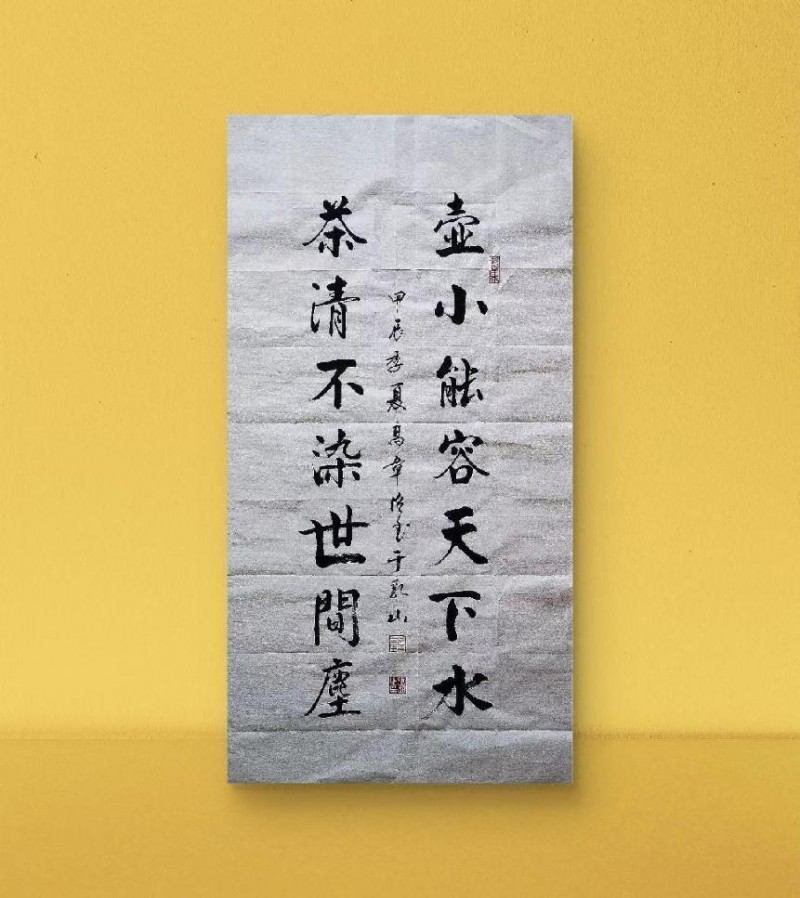 壺小能容天下水
茶清不染世間塵
甲辰季夏高章 于乳山